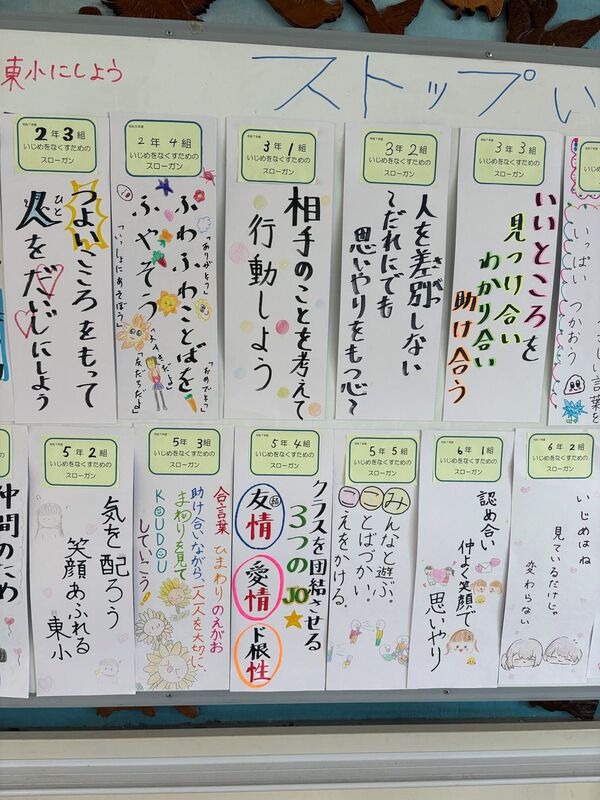 東小にしよう
ストップい
2年3組
いじめをなくすための
スローガン
つよいこころをもって
人をだいじにしよう
ひと
2年4組
いじめをなくすための
スローガン
ふわふわことばを
ふやそう
「ありがとう」
「いっしょにあそぼう」
「おめでとう」
3年1組
いじめをなくすための
スローガン
相手のことを考えて
行動しよう
3年2組
いじめをなくすための
スローガン
人を差別しない
さべつ
~だれにでも
思いやりをもつ心~
3年3組
いじめをなくすための
スローガン
いいところを
見つけ合い
わかり合い
助け合う
さしい言葉を
いっぱい
つかおう
仲間のため
5年2組
いじめをなくすための
スローガン
気を配ろう
笑顔あふれる
東小
5年3組
いじめをなくすための
スローガン
合言葉 ひまわりのえがお
助け合いながら、一人一人を大切に、
まわりを見て
KOUDOU
していこう!
5年4組
いじめをなくすための
スローガン
クラスを団結させる
3つのJO
友情
愛情
ド根性
5年5組
いじめをなくすための
スローガン
みんなと遊ぶ、
ことばづかい!
こえをかける。
6年1組
いじめをなくすための
スローガン
認め合い
仲よく笑顔で
思いやり
6年2組
いじめをなくすための
スローガン
いじめはね
見ているだけじゃ
変わらない